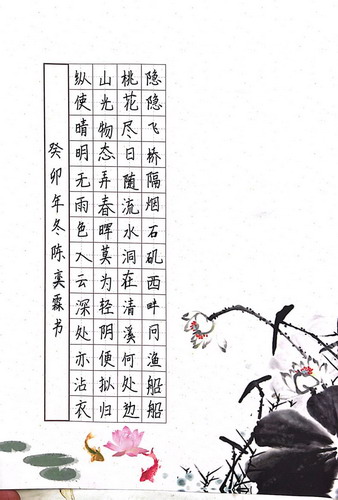 隐隐飞桥隔烟石矶西畔问渔船船
桃花尽日随流水洞在清溪何处边
山光物态弄春晖莫为轻阴便拟归
纵使晴明无雨色入云深处亦沾衣
癸卯年冬陈奕霖书